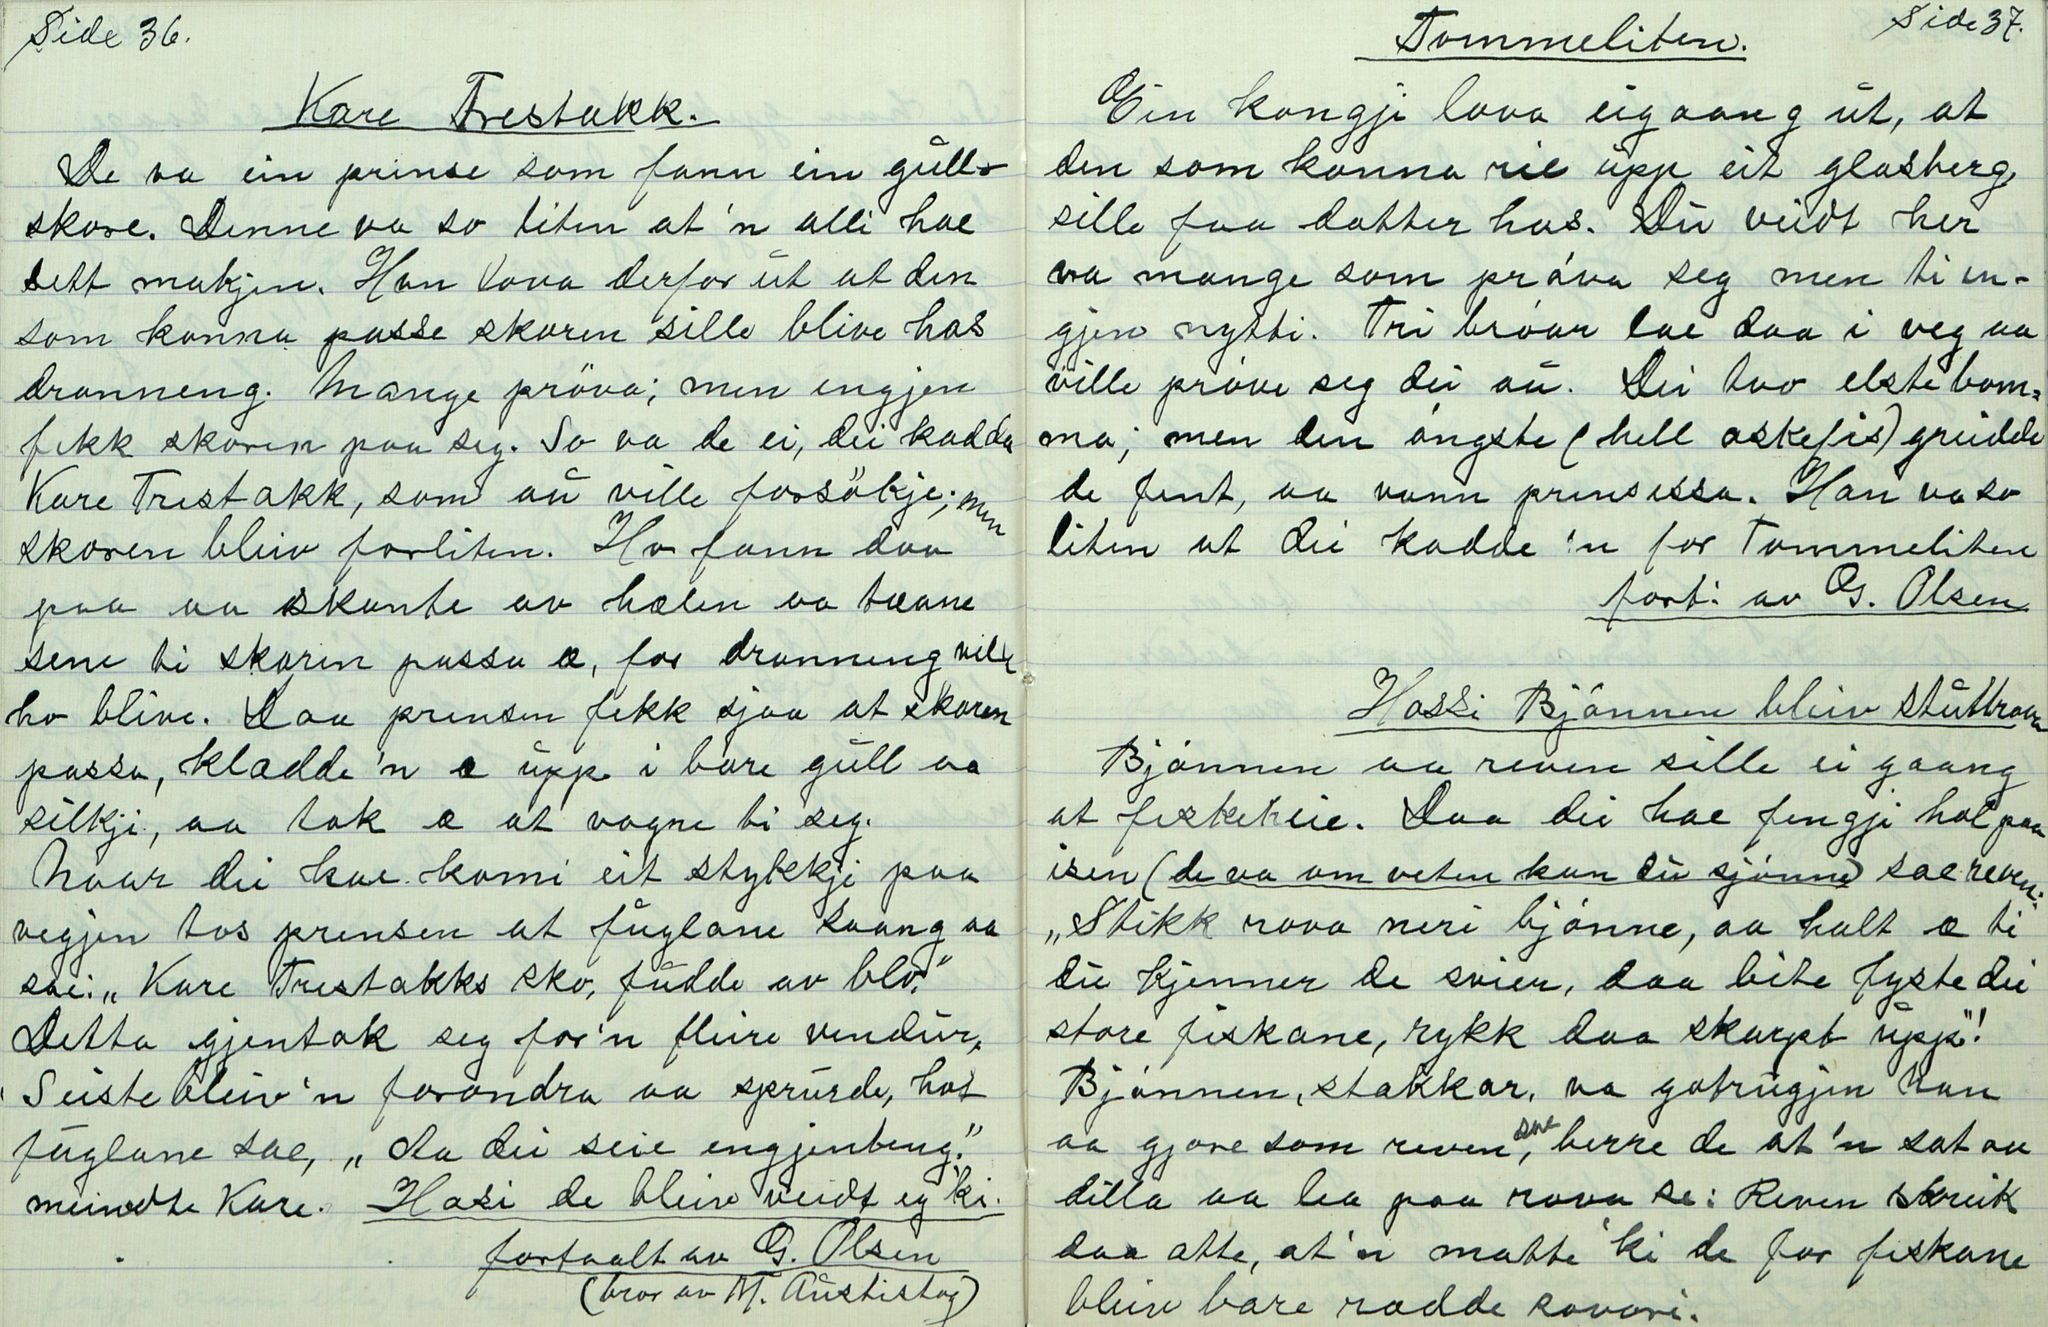 Side 36.
Kare Trestakk.
De va ein prinse som fann ein gŭll-
skore. Denne va so liten at 'n alli hae
sett makjen. Han lova derfor ŭt at den
som konna passe skoren sille blive has
dronneng. Mange pröva; men engjen
fekk skoren paa seg. So va de ei, dei kadda
Kare Trestakk, som aŭ ville forsökje; men
skoren bleiv forliten. Ho fann daa
paa aa skante av hælen aa tæane
sene ti skoren passa æ, for dronneng ville
ho blive. Daa prensen fekk sjaa at skoren
passa, klædde 'n æ ŭpp i bare gŭll aa
silkji, aa tok æ at vogne ti seg.
Naar dei hae komi eit stykkji paa
vegjen tos prensen at fŭglane saang aa
sae: „Kare Trestakks sko, fŭdde av blo."
Detta gjentok seg for'n fleire vendŭr,
Seiste bleiv 'n forondra aa spŭrde, hot
fŭglane sae, „Aa dei seie engjenteng."
meindte Kare. Hosi de bleiv veidt eg 'ki.
fortaalt av G. Olsen
(bror av M. Aŭstistog)
Side 37.
Tommeliten.
Ein kongji lova eigaang ŭt, at
den som konna rie ŭpp eit glasberg
sille faa dotter has. Dŭ veidt her
va mange som pröva seg men ti in-
gjen nytti. Tri bröar lae daa i veg aa
ville pröve seg dei aŭ. Dei tvo elste bom-
ma; men den öngste (hell oskefis) greidde
de fint, aa vann prinsessa. Han va so
liten at dei kadde 'n for Tommeliten
fort: av G. Olsen
Hossi Bjönnen bleiv stŭttrova
Bjönnen aa reven sille ei gaang
at fiskeheie. Daa dei hae fengji hol paa
isen (de va om veten kan dŭ sjönne) sae reven:
„Stikk rova neri bjönne, aa halt æ ti
dŭ kjenner de svier, daa bite fyste dei
store fiskane, rykk daa skarpt ŭpp"!
Bjönnen, stakkar, va gotrŭgjen han
aa gjore som reven sae, berre de at 'n sat aa
dilla aa lea paa rova se: Reven skreik
daa atte, at 'n matte 'ki de for fiskane
bleiv bare rædde sovori.